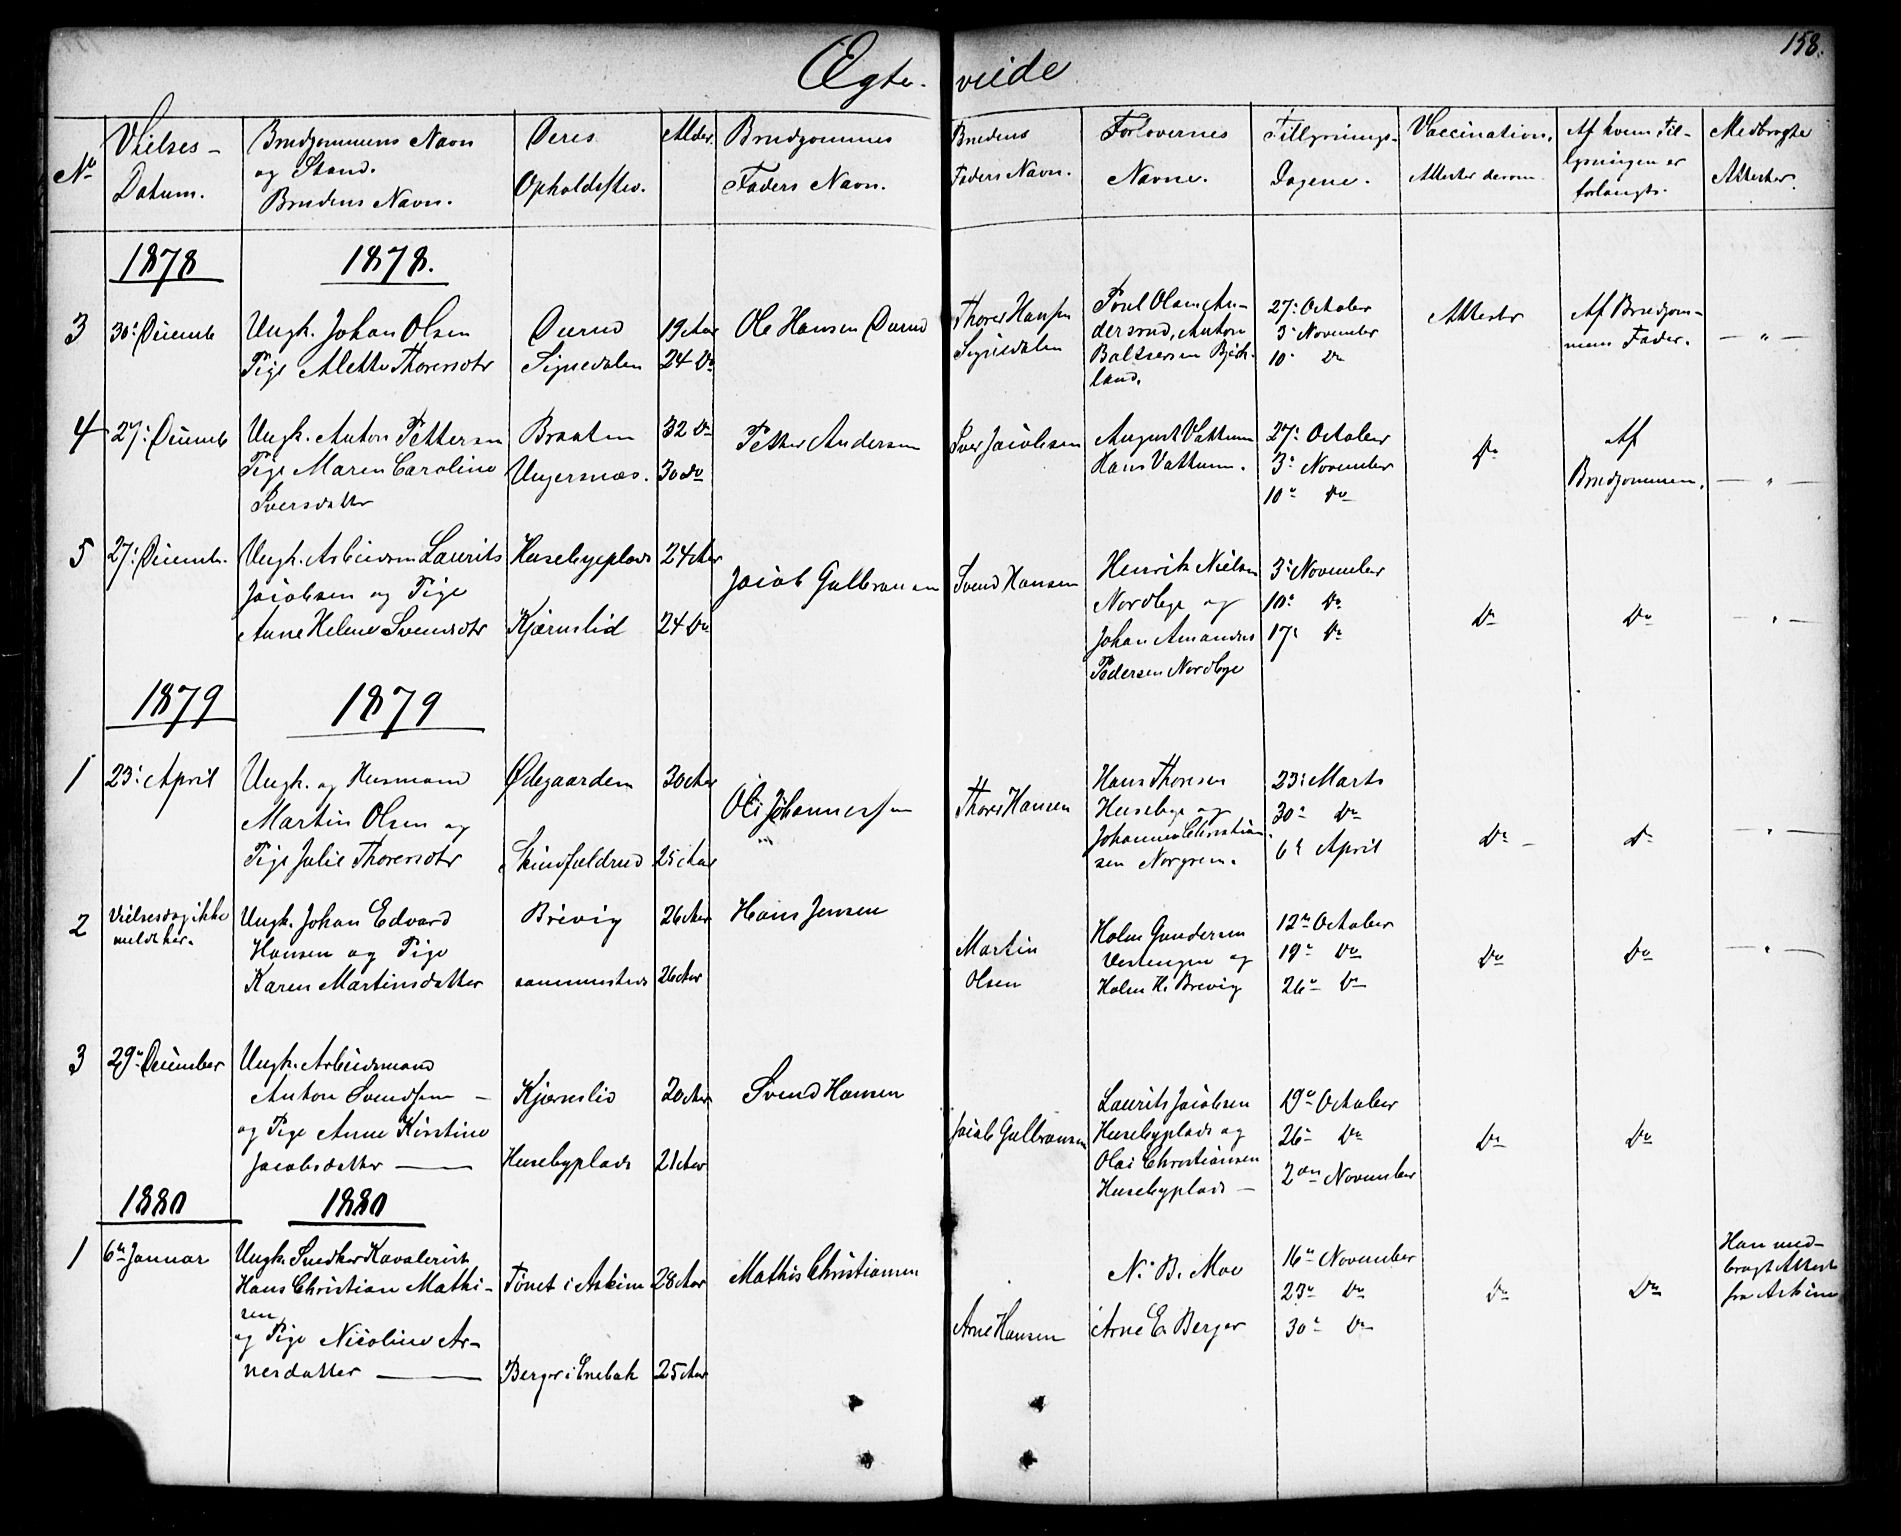 158.
Ægte- viede
No
Vielses-
Datum.
Brudgommens Navn
og Stand.
Brudens Navn.
Deres
Opholdssted.
Alder
Brudgommes
Faders Navn.
Brudens
Faders Navn.
Forlovernes
Navne.
Tillysnings-
Dagene.
Vaccination.
Attester derom.
Af hvem Til-
lysningen er
forlangt.
Medbragte
Attester.
1878 1878.
3 30: Decemb
Ungk. Johan Olsen
Pige Alette Thoresdtr
Durud
Signedalen
19 Aar
24 Do
Ole Hansen Durud
Thores Hansen
Signedalen
Poul Olsen An-
dersrud, Anton
Baltsersen Bjerk-
land.
27: October
3: November
10: Do
Attester
Af Brudgom-
mens Fader.
— " —
4 27: Decemb
Ungk. Anton Pettersen
Pige Maren Caroline
Iversdatter
Braaten
Ungersnæs.
32 Do
30 do
Petter Andersen
Iver Jacobsen
August Vattum
Hans Vattum.
27: October
3: November
10: Do
Do
Af
Brudgommen.
— " —
5 27: Decemb.
Ungk. Arbeidsm Laurits
Jacobsen og Pige
Anne Helene Svendsdtr
Husebyeplads
Kjærnslid
24 Aar
24 Do
Jacob Gulbransen
Svend Hansen
Henrik Nielsen
Nordbye og
Johan Amandus
Pedersen Nordbye
3: November
10: Do
17: Do
Do
Do
— " —
1879 1879
1 23: April
Ungk. og Husmand
Martin Olsen og
Pige Julie Thoresdtr
Ødegaarden
Skindfeldrud
30 Aar
25 Aar
Ole Johannessen
Thores Hansen
Hans Thoresen
Husebye og
Johannes Christian
sen Norgren.
23: Marts
30: Do
6: April
Do —
do
— " —
2 Vielsesdag ikke
meldt her.
Ungk. Johan Edvard
Hansen og Pige
Karen Martinsdatter
Brevig
sammesteds
26 Aar
26 Aar
Hans Jensen
Martin
Olsen
Holm Gundersen
Vestengen og
Holm H. Brevig
12: October
19: Do
26: Do
Do
Do
— " —
3 29: December
Ungk. Arbeidsmand
Anton Svendsen —
og Pige Anne Kirstine
Jacobsdatter —
Kjærnslid
Husebyplads
20 Aar
21 Aar
Svend Hansen
Jacob Gulbransen
Laurits Jacobsen
Husebyplads og
Olai Christiansen
Husebyplads —
19: October
26: Do
2den November
Do
Do
1880 1880
1 6te Januar
Ungk. Snedker Kavalerist
Hans Christian Mathi-
sen
og Pige Nicoline Ar-
nesdatter —
Tonet i Askim
Berger i Enebak
28 Aar
25 Aar
Mathis Christiansen
Arne Hansen
N. B. Moe
Arne E. Berger
16: November
23: Do
30: Do
Do
Do
Han med-
bragt Attest
fra Askim